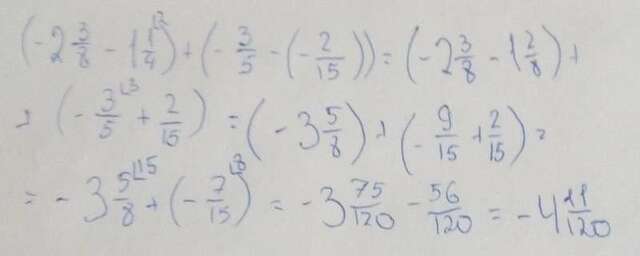 (-2 3/8 - 1 1/4 ⌊2) + (- 3/5 - (- 2/15)) = (-2 3/8 - 1 2/8) +
+ (- 3/5 ⌊3 + 2/15) = (-3 5/8) + (- 9/15 + 2/15) =
= -3 5/8 ⌊15 + (- 7/15 ⌊8) = -3 75/120 - 56/120 = -4 11/120